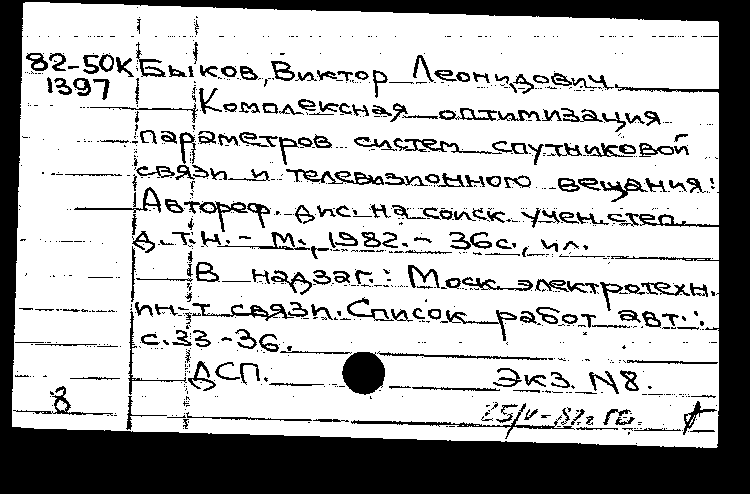 82-50К Быков, Виктор Леонидович.
1397
Комплексная оптимизация
параметров систем спутниковой
связи и телевизионного вещания:
Автореф. дис. на соиск. учен. степ.
д.т.н. - М., 1982. - 36с., ил.
В надзаг.: Моск. электротехн.
ин-т связи. Список работ авт.:
с.33-36.
ДСП. Экз. N8.
8
25/V-82г.